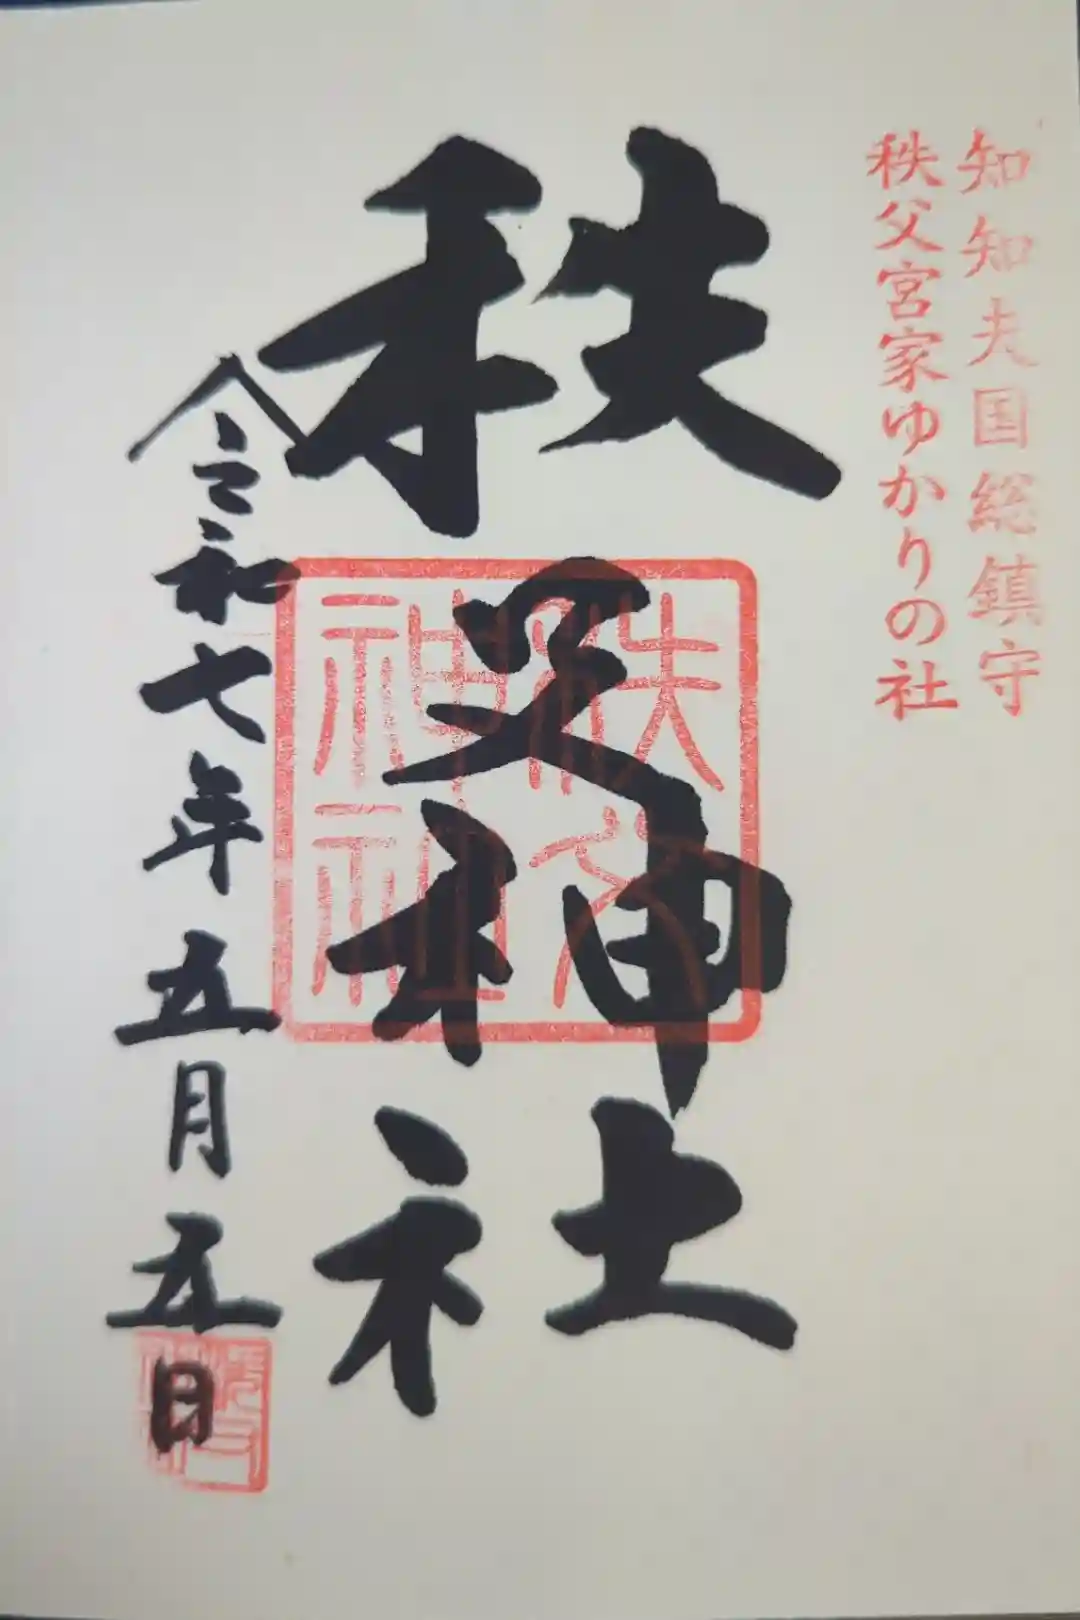 知知夫国総鎮守
秩父宮家ゆかりの社
秩父神社
秩父
神社
令和七年五月五日